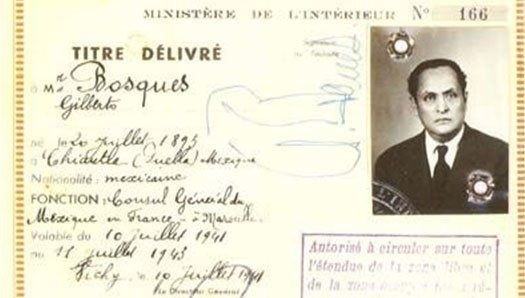 MINISTÈRE DE L'INTÉRIEUR Nº 166
TITRE DÉLIVRÉ
à Mr Bosques
Gilberto
né le 20 juillet 1892
à Chiautla (Puella) Mexique
Nationalité : mexicaine
FONCTION: Consul Général du
Mexique en France - à Marseille
Valable du 10 juillet 1941
au 11 juillet 1943
Vichy le 10 juillet 1941
Le Directeur Général
Signature
du Titulaire
Autorisé à circuler sur toute
l'étendue de la zone libre et
de la zone